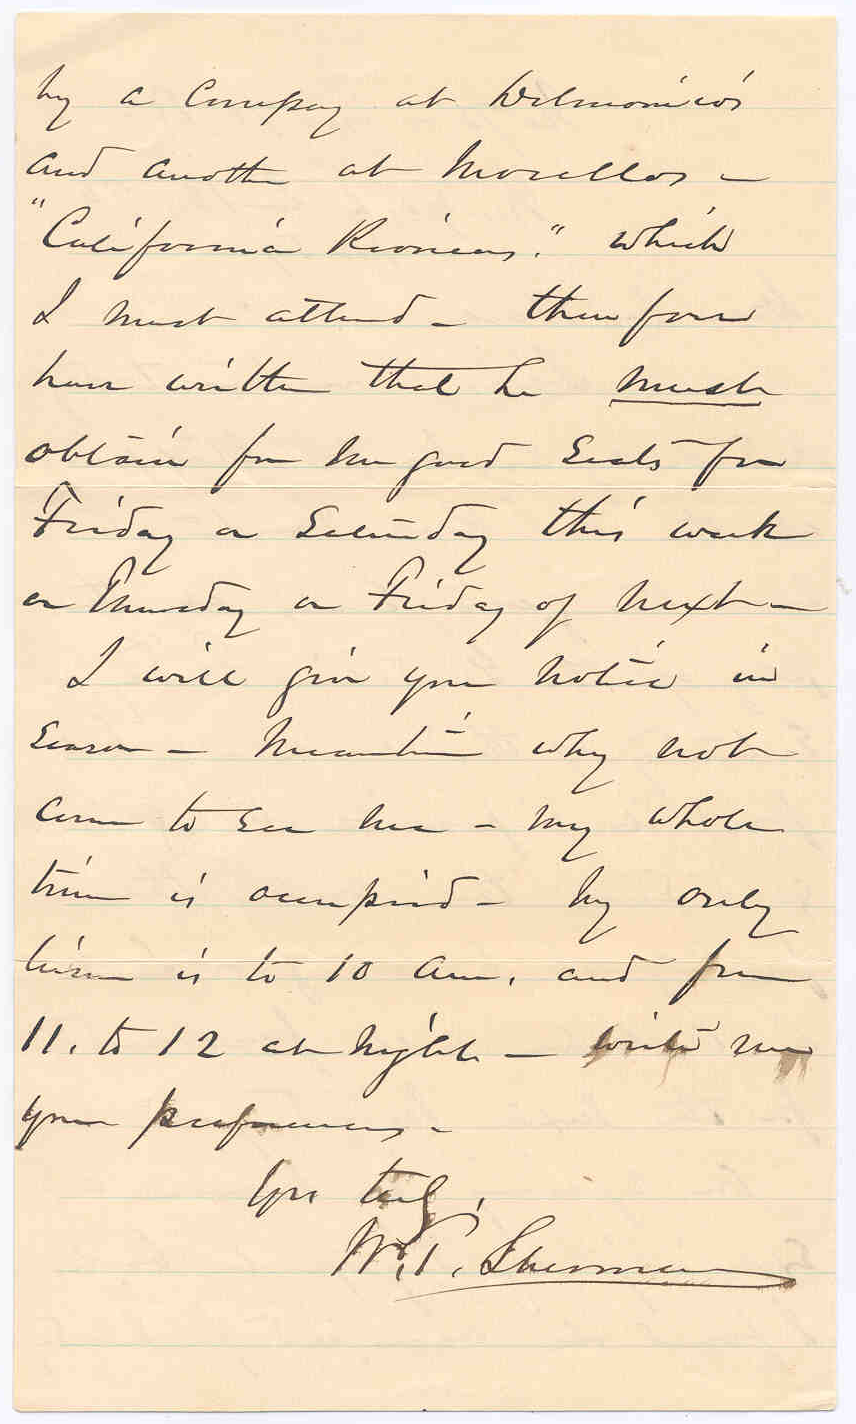 by a Company at Delmonico's
and another at Morellos —
"California Pioneers." which
I must attend — therefore
have written that he must
obtain for me good Seats for
Friday or Saturday this week
or Thursday or Friday of next —
I will give you notice in
Season — Meantime why not
come to see me — my whole
time is occupied — my only
time is to 10 am. and from
11. to 12 at night — write me
your preferences —
Yrs truly,
W. T. Sherman